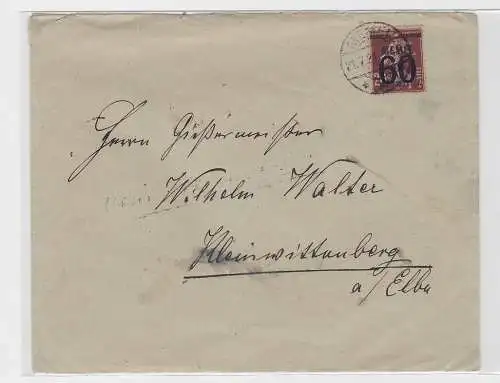 Herrn Gießermeister
Wilhelm Walter
Kleinwittenberg
a/Elbe
60